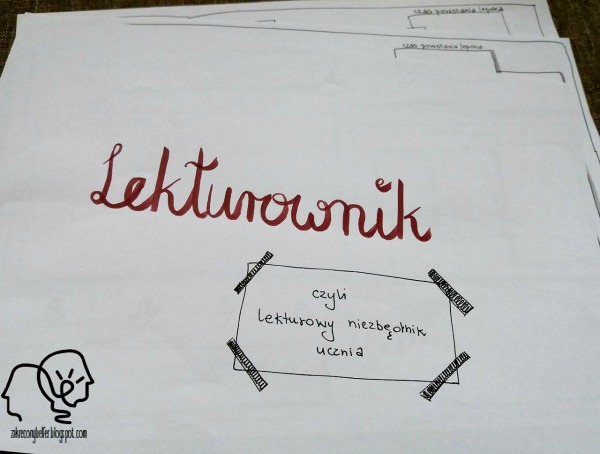 czas powstania/epoka
czas powstania/epoka
Lekturownik
czyli
lekturowy niezbędnik
ucznia
zakreconybelfer.blogspot.com